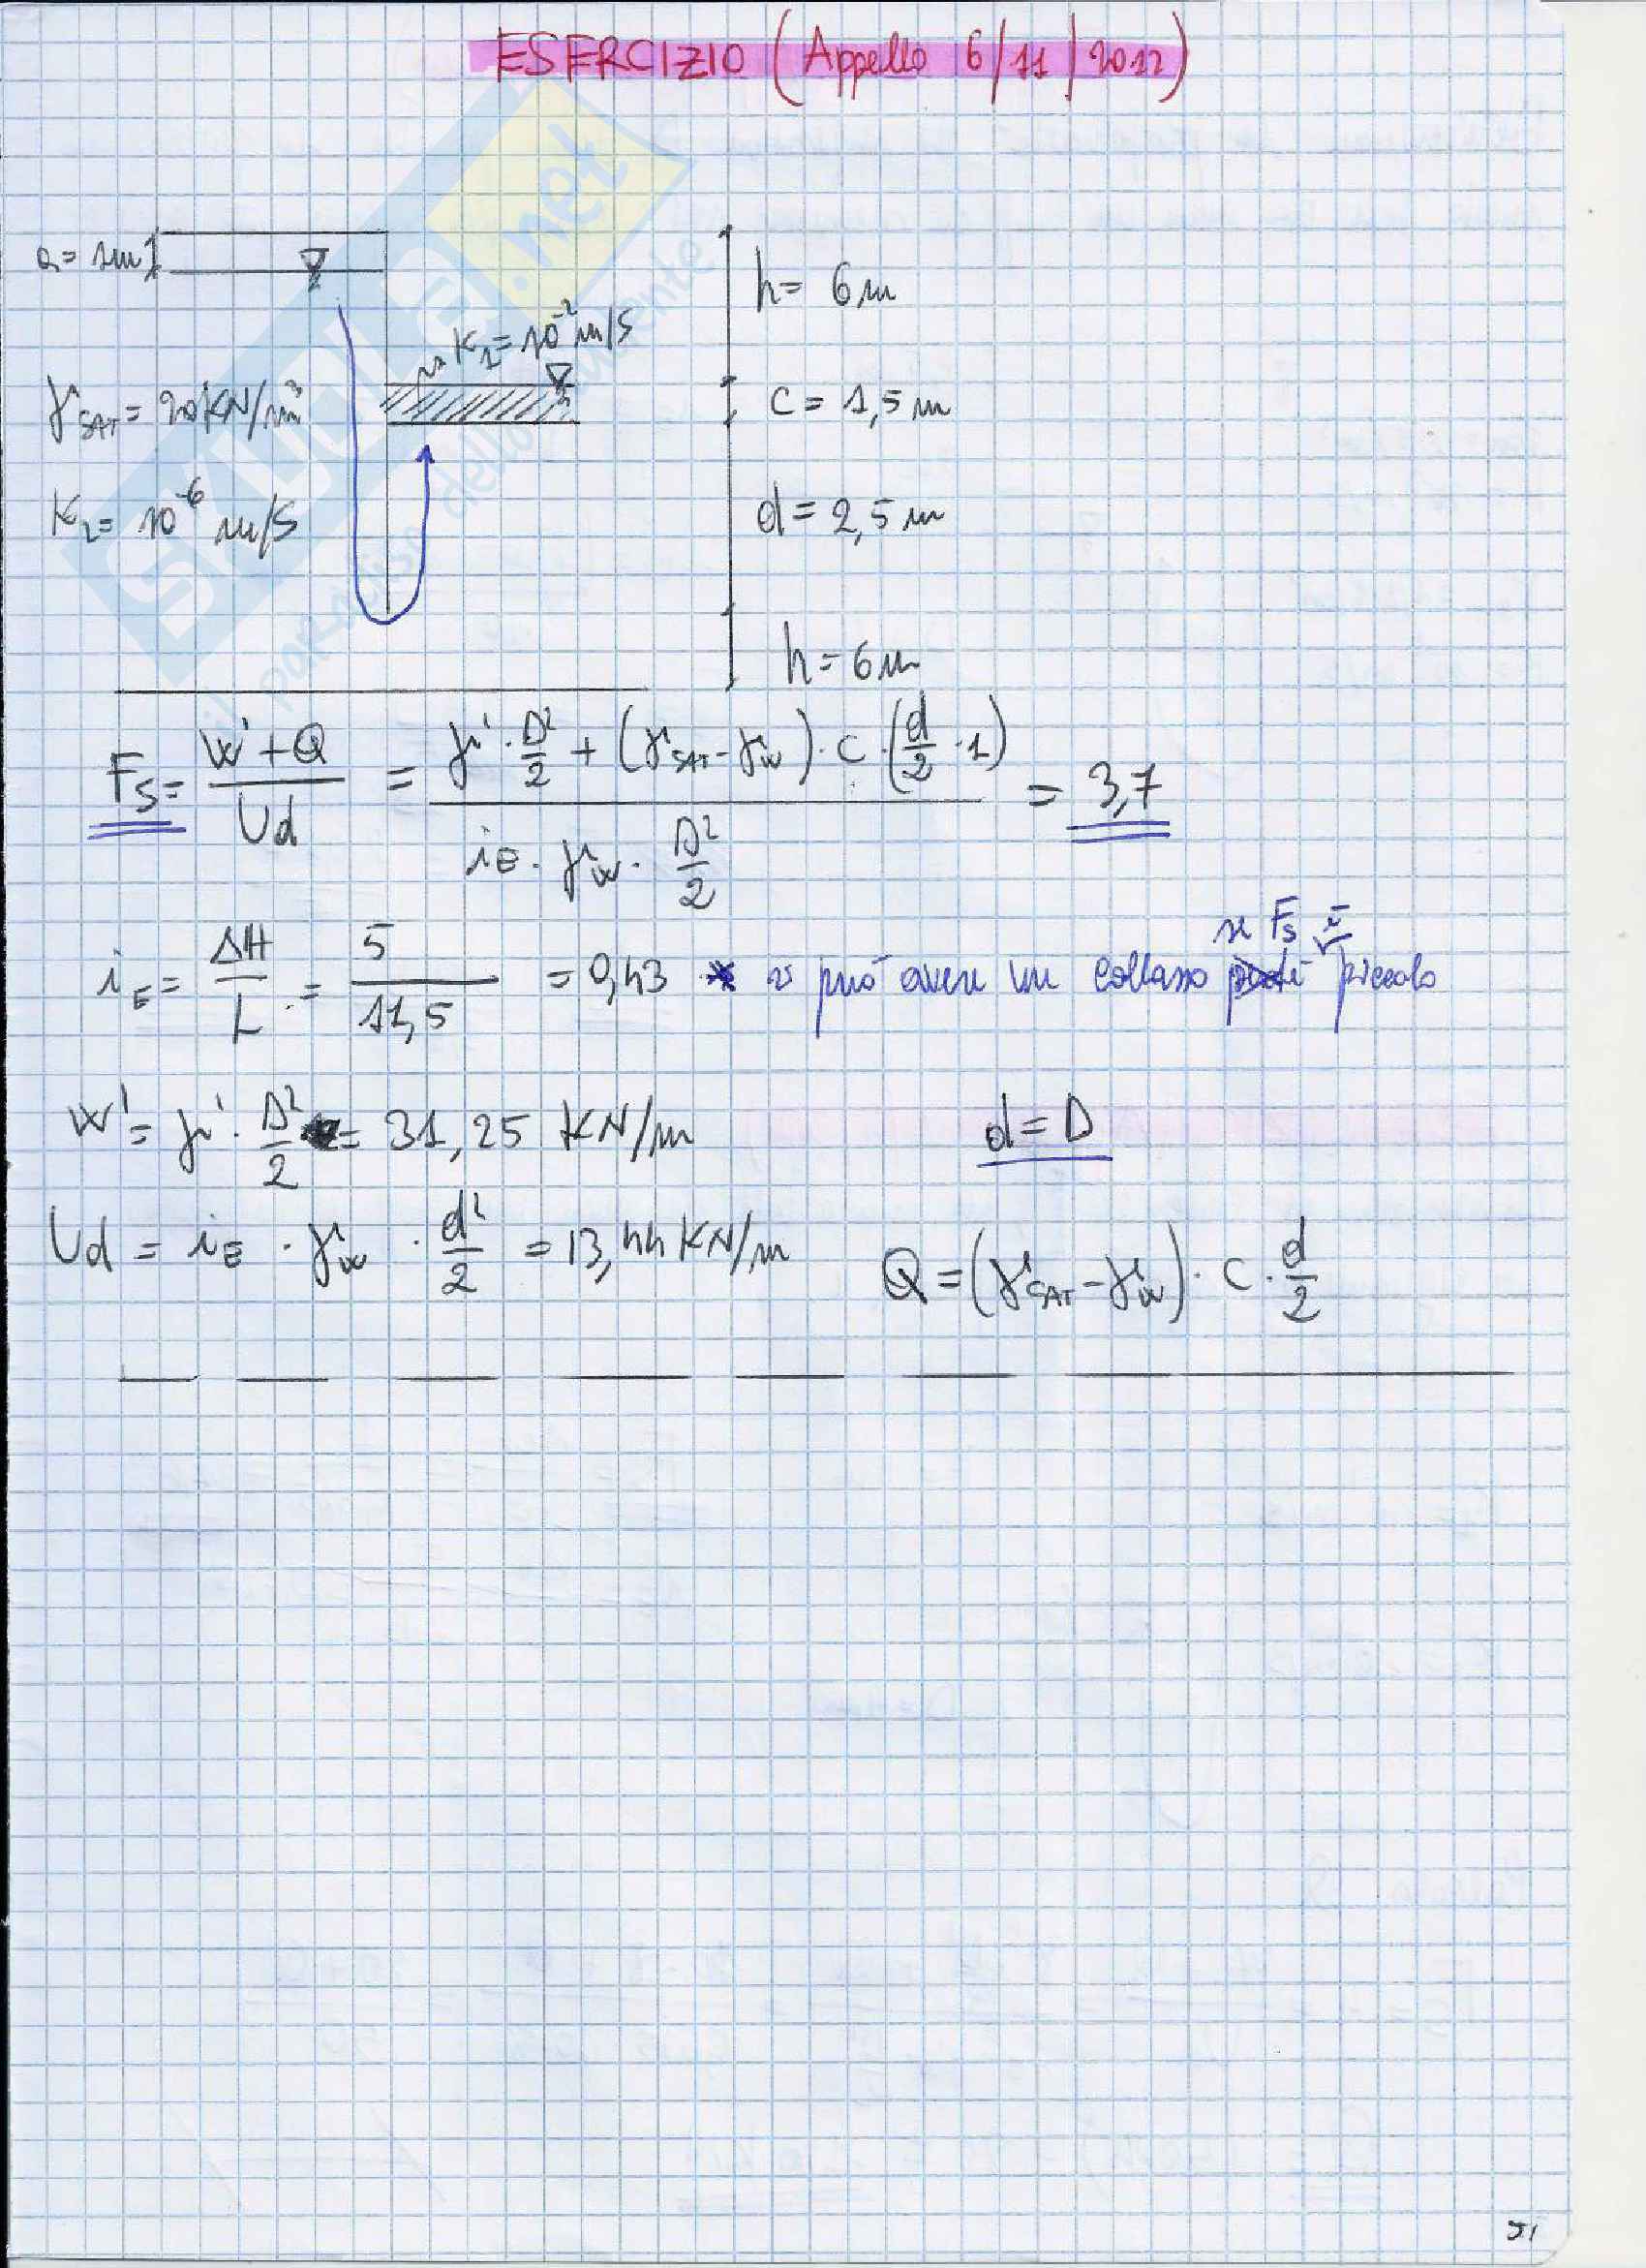 ESERCIZIO (Appello 6/11/2012)
a = 1m
h = 6m
K1 = 10^-2 m/s
γSAT = 20 KN/m³
c = 1,5 m
K2 = 10^-6 m/s
d = 2,5 m
h = 6m
FS = (W' + Q) / Ud = (γ' · D²/2 + (γSAT - γw) · c · (d/2 · 1)) / (iE · γw · D²/2) = 3,7
iE = ΔH / L = 5 / 11,5 = 0,43 * si può avere un collasso se FS è piccolo
W' = γ' · D²/2 = 31,25 KN/m
d = D
Ud = iE · γw · d²/2 = 13,44 KN/m
Q = (γSAT - γw) · c · d/2
SKUOLA.net
il paradiso dello studente